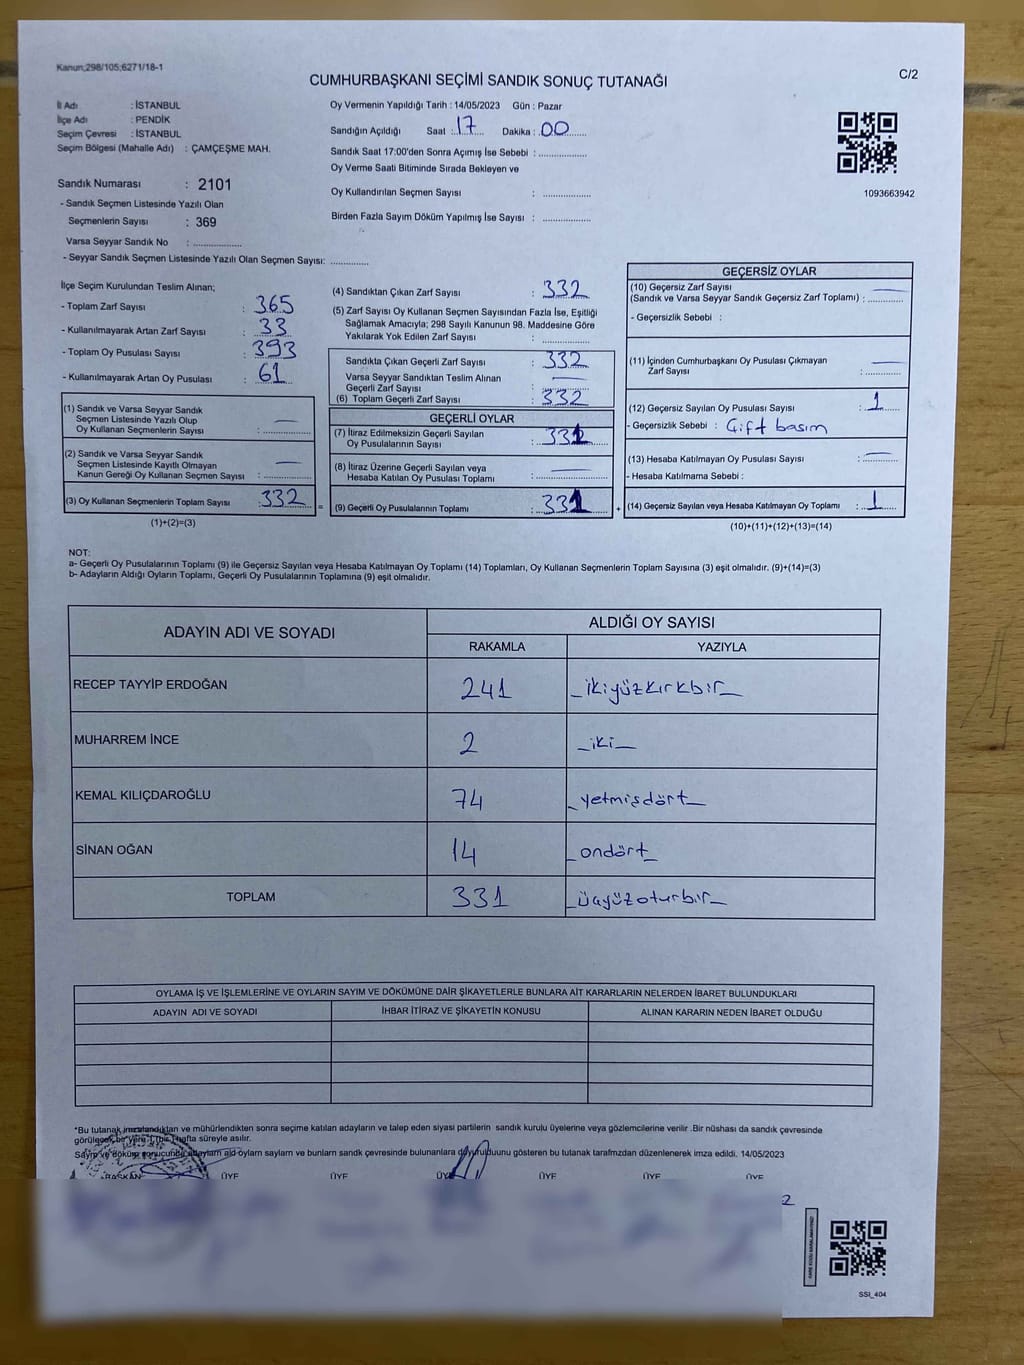 Kanun;298/105;6271/18-1
C/2
CUMHURBAŞKANI SEÇİMİ SANDIK SONUÇ TUTANAĞI
İl Adı : İSTANBUL
İlçe Adı : PENDİK
Seçim Çevresi : İSTANBUL
Seçim Bölgesi (Mahalle Adı) : ÇAMÇEŞME MAH.
Sandık Numarası : 2101
- Sandık Seçmen Listesinde Yazılı Olan
Seçmenlerin Sayısı : 369
Varsa Seyyar Sandık No : ................
- Seyyar Sandık Seçmen Listesinde Yazılı Olan Seçmen Sayısı: .............
Oy Vermenin Yapıldığı Tarih : 14/05/2023 Gün : Pazar
Sandığın Açıldığı Saat : 17 Dakika : 00
Sandık Saat 17:00'den Sonra Açımış İse Sebebi : ................
Oy Verme Saati Bitiminde Sırada Bekleyen ve
Oy Kullandırılan Seçmen Sayısı : ................
Birden Fazla Sayım Döküm Yapılmış İse Sayısı : ................
1093663942
İlçe Seçim Kurulundan Teslim Alınan;
- Toplam Zarf Sayısı : 365
- Kullanılmayarak Artan Zarf Sayısı : 33
- Toplam Oy Pusulası Sayısı : 393
- Kullanılmayarak Artan Oy Pusulası : 61
(1) Sandık ve Varsa Seyyar Sandık
Seçmen Listesinde Yazılı Olup
Oy Kullanan Seçmenlerin Sayısı : —
(2) Sandık ve Varsa Seyyar Sandık
Seçmen Listesinde Kayıtlı Olmayan
Kanun Gereği Oy Kullanan Seçmen Sayısı : —
(3) Oy Kullanan Seçmenlerin Toplam Sayısı : 332
(1)+(2)=(3)
=
(4) Sandıktan Çıkan Zarf Sayısı : 332
(5) Zarf Sayısı Oy Kullanan Seçmen Sayısından Fazla İse, Eşitliği
Sağlamak Amacıyla; 298 Sayılı Kanunun 98. Maddesine Göre
Yakılarak Yok Edilen Zarf Sayısı : ................
Sandıkta Çıkan Geçerli Zarf Sayısı : 332
Varsa Seyyar Sandıktan Teslim Alınan
Geçerli Zarf Sayısı : —
(6) Toplam Geçerli Zarf Sayısı : 332
GEÇERLİ OYLAR
(7) İtiraz Edilmeksizin Geçerli Sayılan
Oy Pusulalarının Sayısı : 331
(8) İtiraz Üzerine Geçerli Sayılan veya
Hesaba Katılan Oy Pusulası Toplamı : —
(9) Geçerli Oy Pusulalarının Toplamı : 331
+
GEÇERSİZ OYLAR
(10) Geçersiz Zarf Sayısı
(Sandık ve Varsa Seyyar Sandık Geçersiz Zarf Toplamı) : —
- Geçersizlik Sebebi :
(11) İçinden Cumhurbaşkanı Oy Pusulası Çıkmayan
Zarf Sayısı : —
(12) Geçersiz Sayılan Oy Pusulası Sayısı : 1
- Geçersizlik Sebebi : Çift basım
(13) Hesaba Katılmayan Oy Pusulası Sayısı : —
- Hesaba Katılmama Sebebi :
(14) Geçersiz Sayılan veya Hesaba Katılmayan Oy Toplamı : 1
(10)+(11)+(12)+(13)=(14)
NOT:
a- Geçerli Oy Pusulalarının Toplamı (9) ile Geçersiz Sayılan veya Hesaba Katılmayan Oy Toplamı (14) Toplamları, Oy Kullanan Seçmenlerin Toplam Sayısına (3) eşit olmalıdır. (9)+(14)=(3)
b- Adayların Aldığı Oyların Toplamı, Geçerli Oy Pusulalarının Toplamına (9) eşit olmalıdır.
ADAYIN ADI VE SOYADI
ALDIĞI OY SAYISI
RAKAMLA YAZIYLA
RECEP TAYYİP ERDOĞAN 241 _ikiyüzkırkbir_
MUHARREM İNCE 2 _iki_
KEMAL KILIÇDAROĞLU 74 _yetmişdört_
SİNAN OĞAN 14 _ondört_
TOPLAM 331 _üçyüzoturbir_
OYLAMA İŞ VE İŞLEMLERİNE VE OYLARIN SAYIM VE DÖKÜMÜNE DAİR ŞİKAYETLERLE BUNLARA AİT KARARLARIN NELERDEN İBARET BULUNDUKLARI
ADAYIN ADI VE SOYADI İHBAR İTİRAZ VE ŞİKAYETİN KONUSU ALINAN KARARIN NEDEN İBARET OLDUĞU
*Bu tutanak imzalandıktan ve mühürlendikten sonra seçime katılan adayların ve talep eden siyasi partilerin sandık kurulu üyelerine veya gözlemcilerine verilir .Bir nüshası da sandık çevresinde
görülecek bir yere 1 (bir) hafta süreyle asılır.
Sayım ve döküm sonucunda adayların ald oyların sayların ve bunların sandık çevresinde bulunanlara duyurulduunu gösteren bu tutanak tarafmzdan düzenlenerek imza edildi. 14/05/2023
BAŞKAN ÜYE ÜYE ÜYE ÜYE ÜYE ÜYE
SSI_404